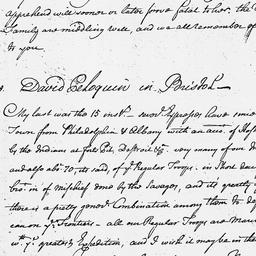 apprehend will sooner or later prove fatal to her, the
Family are middling well, and we all remember
to you.
David Peloquin in Bristol
My last was the 15 inst. - several Expresses have since
Town from Philadelphia & Albany with an acco. of
by the Indians at Fort Pitt, Detroit &c. very many of our
and also abt. 70, its said, of ye Regular Troops. in Short
bro. in of mischief done by the Savages, and its greatly
there is a pretty general Combination among them to
on our Frontiers - all our Regular Troops are
wt. ye. greatest Expedition, and I wish it may be in